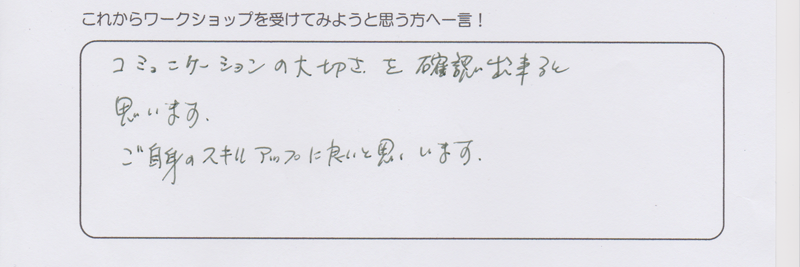 これからワークショップを受けてみようと思う方へ一言！
コミュニケーションの大切さを確認出来ると
思います.
ご自身のスキルアップに良いと思います.